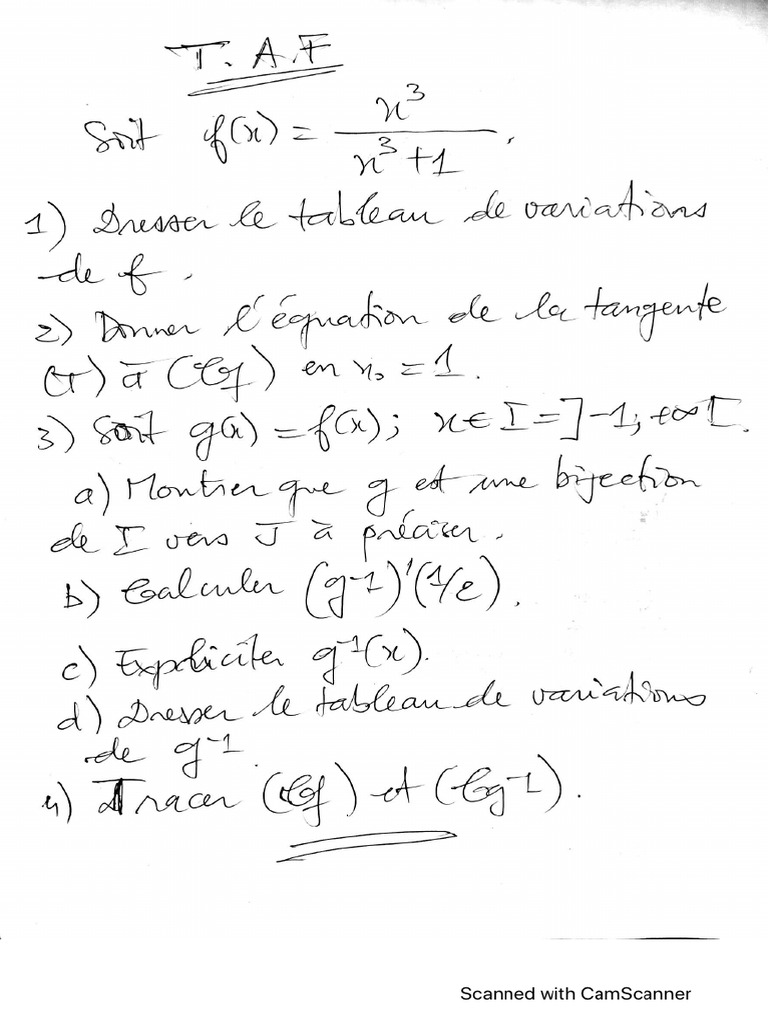 T.A.F
Soit f(x) = x³ / x³+1 .
1) Dresser le tableau de variations
de f.
2) Donner l'équation de la tangente
(T) à (Cf) en x₀ = 1.
3) Soit g(x) = f(x); x ∈ I = ]-1; +∞[.
a) Montrer que g est une bijection
de I vers J à préciser.
b) Calculer (g-1)'(1/2).
c) Expliciter g⁻¹(x).
d) Dresser le tableau de variations
de g⁻¹.
4) Tracer (Cf) et (Cg-1).
Scanned with CamScanner